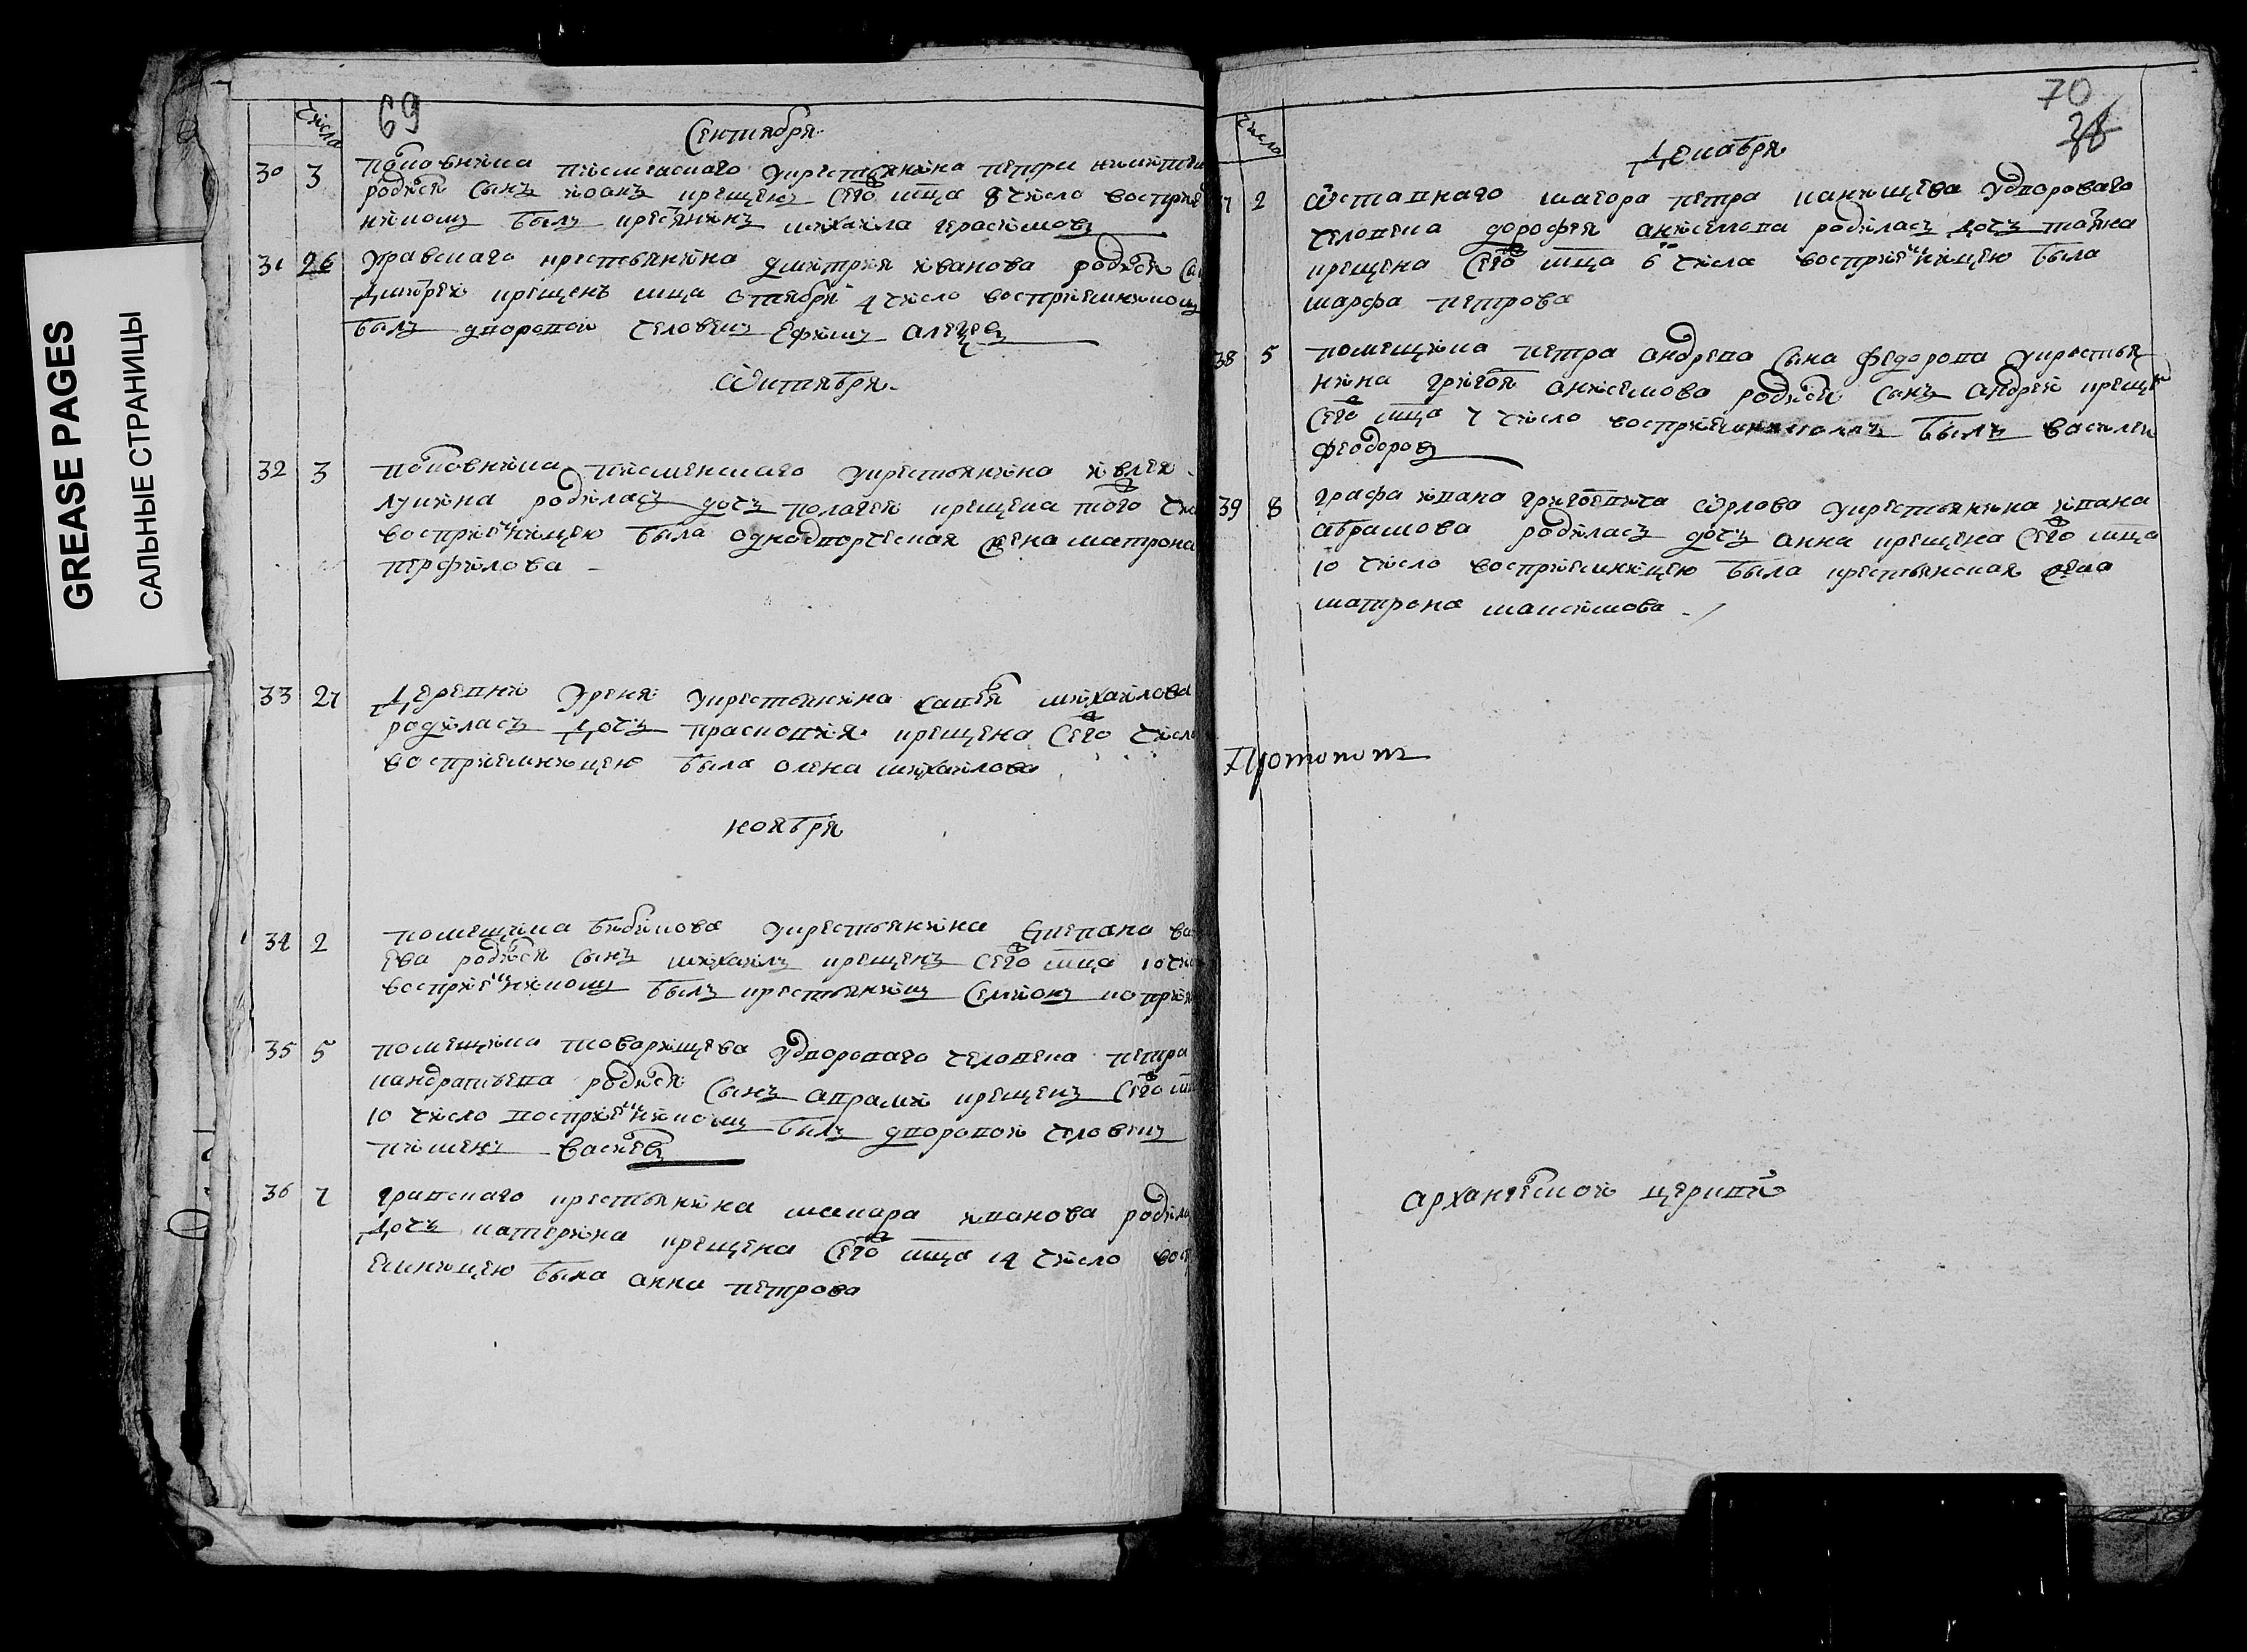 GREASE PAGES
САЛЬНЫЕ СТРАНИЦЫ
69
числа
Сентября
30 3 полковника писменскаго укрестьянина петра
родися сынъ иоанъ крещенъ сего мца 8 число восприе
никомъ былъ крестянинъ михаила герасимовъ
31 26 графскаго крестьянина дмитрия иванова родися
димитрей крещенъ мца октября 4 число восприемникомъ
былъ дворовой человекъ ефимъ
Октября
32 3 полковника писменскаго укрестьянина
лукина родилась дочь пелагея крещена того
восприемницею была однодворческая жена матрона
перфилова
33 21 деревни укрестьянина михаилова
родилась дочь прасковия крещена сего число
восприемницею была олена михаилова
ноября
34 2 помещика бибикова укрестьянина степана
ева родися сынъ михаилъ крещенъ сего мца 10
восприемникомъ былъ крестьянинъ семионъ
35 5 помещика товарищева удвороваго человека петра
кандратьева родися сынъ аврамий крещенъ сего
10 число восприемникомъ былъ дворовой человекъ
пимень
36 7 графскаго крестьянина макара иванова
дочь катерина крещена сего мца 14 число
емницею была анна петрова
70
38
числа
Декабря
2 отставнаго маеора петра удвороваго
человека дорофея анисимова родилась дочь татиана
крещена сего мца 6 числа восприемницею была
марфа петрова
38 5 помещика петра андреева сына федорова укрестья
нина григория анисимова родися сынъ андрей
сего мца 7 число восприемникомъ былъ василей
феодоровъ
39 8 графа ивана григоревича орлова укрестьянина ивана
абрамова родилась дочь анна крещена сего мца
10 число восприемницею была крестьянская жена
матрона максимова
Протопопъ
архангелской церкви